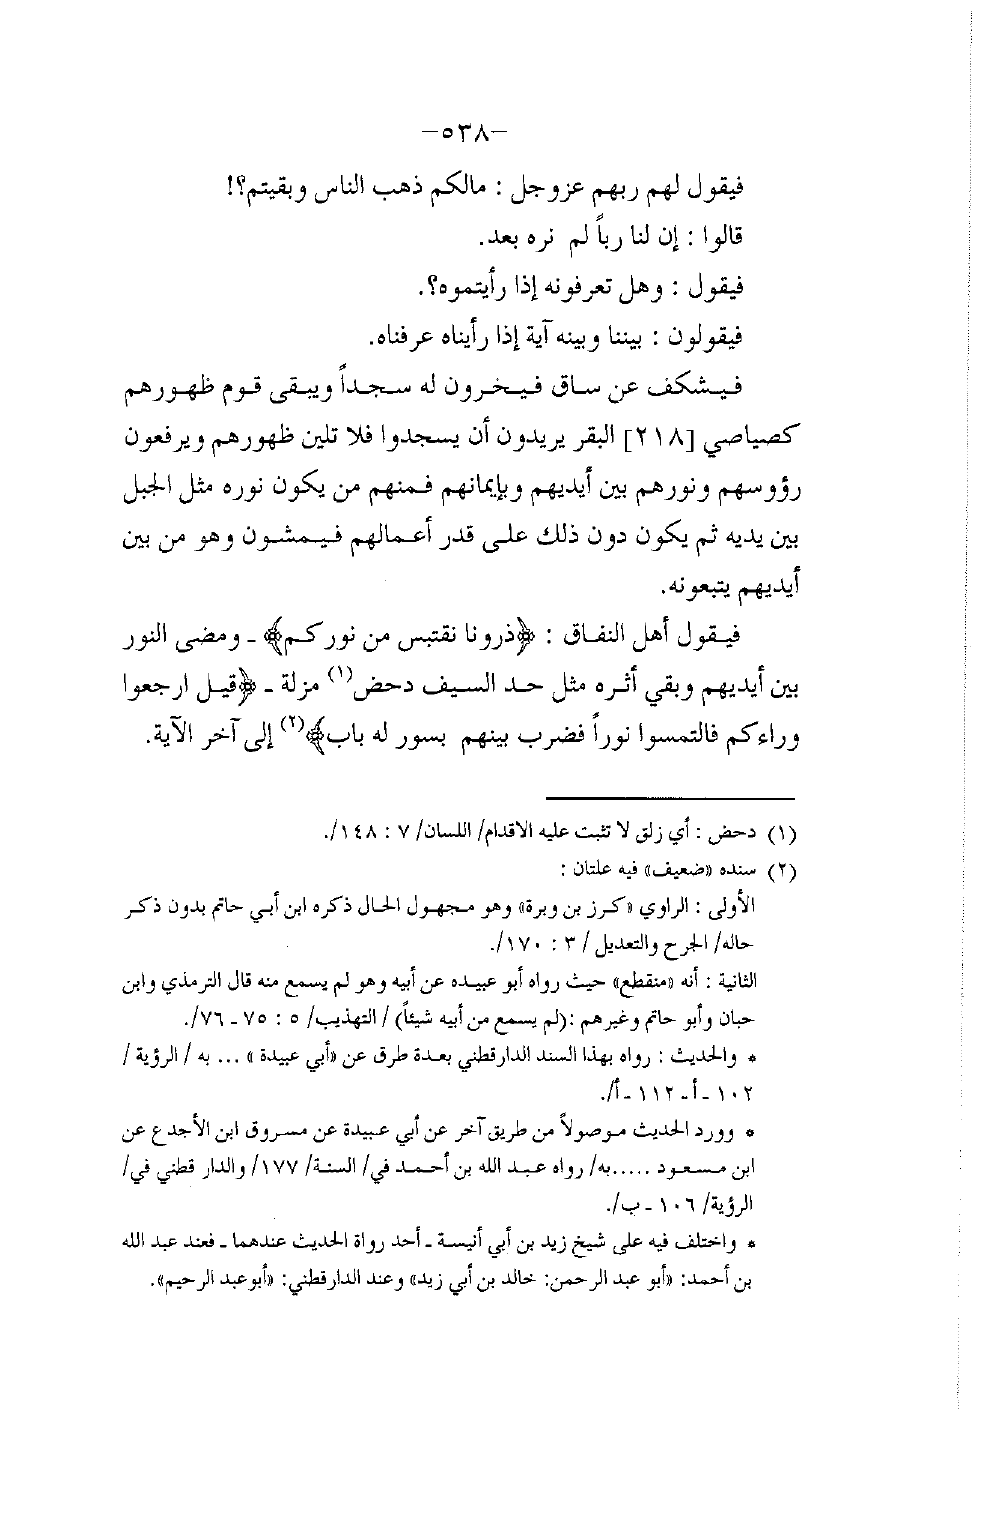 -٥٣٨-
فيقول لهم ربهم عزوجل : مالكم ذهب الناس وبقيتم؟!
قالوا : إن لنا رباً لم نره بعد.
فيقول : وهل تعرفونه إذا رأيتموه؟.
فيقولون : بيننا وبينه آية إذا رأيناه عرفناه.
فيشكف عن ساق فيخرون له سجداً ويبقى قوم ظهورهم
كصياصي [٢١٨] البقر يريدون أن يسجدوا فلا تلين ظهورهم ويرفعون
رؤوسهم ونورهم بين أيديهم وبإيمانهم فمنهم من يكون نوره مثل الجبل
بين يديه ثم يكون دون ذلك على قدر أعمالهم فيمشون وهو من بين
أيديهم يتبعونه.
فيقول أهل النفاق : ﴿ذرونا نقتبس من نوركم﴾ ـ ومضى النور
بين أيديهم وبقي أثره مثل حد السيف دحض(١) مزلة ـ ﴿قيل ارجعوا
وراءكم فالتمسوا نوراً فضرب بينهم بسور له باب﴾(٢) إلى آخر الآية.
(١) دحض : أي زلق لا تثبت عليه الاقدام/ اللسان/ ٧ : ١٤٨/.
(٢) سنده «ضعيف» فيه علتان :
الأولى : الراوي «كرز بن وبرة» وهو مجهول الحال ذكره ابن أبي حاتم بدون ذكر
حاله/ الجرح والتعديل / ٣ : ١٧٠/.
الثانية : أنه «منقطع» حيث رواه أبو عبيده عن أبيه وهو لم يسمع منه قال الترمذي وابن
حبان وأبو حاتم وغيرهم :(لم يسمع من أبيه شيئاً) / التهذيب/ ٥ : ٧٥ ـ ٧٦/.
* والحديث : رواه بهذا السند الدارقطني بعدة طرق عن «أبي عبيدة » ... به / الرؤية /
١٠٢ ـ أ ـ ١١٢ ـ أ/.
* وورد الحديث موصولاً من طريق آخر عن أبي عبيدة عن مسروق ابن الأجدع عن
ابن مسعود .....به/ رواه عبد الله بن أحمد في/ السنة/ ١٧٧/ والدار قطني في/
الرؤية/ ١٠٦ ـ ب/.
* واختلف فيه على شيخ زيد بن أبي أنيسة ـ أحد رواة الحديث عندهما ـ فعند عبد الله
بن أحمد: «أبو عبد الرحمن: خالد بن أبي زيد» وعند الدارقطني: «أبوعبد الرحيم».